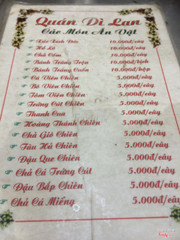 Quán Dì Lan
Các Món Ăn Vặt
Xúc Xích Đức 10.000đ/cây
Hồ Lô 10.000đ/cây
Chả Cốm 10.000đ/cây
Bánh Tráng Trộn 10.000đ/hộp
Bánh Tráng Cuốn 10.000đ/hộp
Cá Viên Chiên 5.000đ/cây
Bò Viên Chiên 5.000đ/cây
Tôm Viên Chiên 5.000đ/cây
Trứng Cút Chiên 5.000đ/cây
Thanh Cua 5.000đ/cây
Hoành Thánh Chiên 5.000đ/cây
Chả Giò Chiên 5.000đ/cây
Tàu Hủ Chiên 5.000đ/cây
Đậu Que Chiên 5.000đ/cây
Chả Cá Trứng Cút 5.000đ/cây
Đậu Bắp Chiên 5.000đ/cây
Chả Cá Miếng 5.000đ/cây